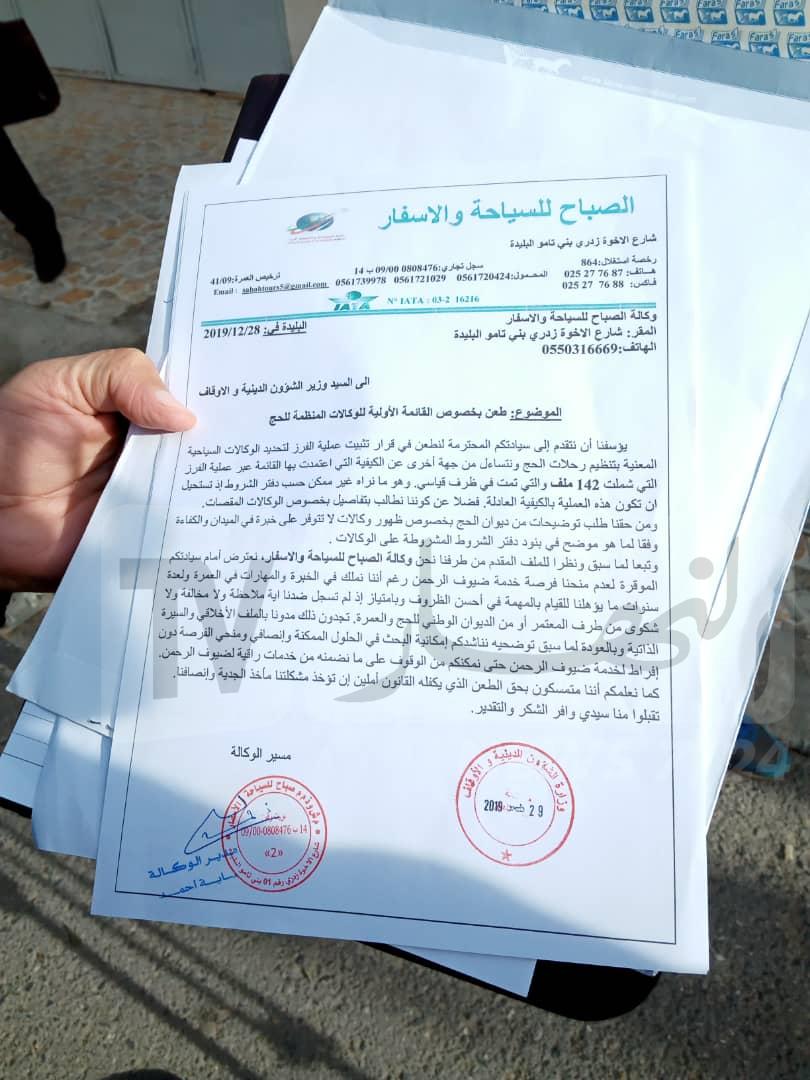 Faras
الصباح للسياحة والاسفار
شارع الاخوة زدري بني تامو البليدة
رخصة استغلال:864
سجل تجاري:0808476 09/00 ب 14
ترخيص العمرة:41/09
هاتف: 87 76 27 025
المحمول:0561720424 0561721029 0561739978
Email : sabahtours5@gmail.com
فاكس: 88 76 27 025
IATA
N° IATA : 03-2 16216
وكالة الصباح للسياحة والاسفار
المقر: شارع الاخوة زدري بني تامو البليدة
البليدة في: 2019/12/28
الهاتف:0550316669
الى السيد وزير الشؤون الدينية و الاوقاف
الموضوع: طعن بخصوص القائمة الأولية للوكالات المنظمة للحج
يؤسفنا أن نتقدم إلى سيادتكم المحترمة لنطعن في قرار تثبيت عملية الفرز لتحديد الوكالات السياحية
المعنية بتنظيم رحلات الحج ونتساءل من جهة أخرى عن الكيفية التي اعتمدت بها القائمة عبر عملية الفرز
التي شملت 142 ملف والتي تمت في ظرف قياسي. وهو ما نراه غير ممكن حسب دفتر الشروط إذ تستحيل
ان تكون هذه العملية بالكيفية العادلة. فضلا عن كوننا نطالب بتفاصيل بخصوص الوكالات المقصات.
ومن حقنا طلب توضيحات من ديوان الحج بخصوص ظهور وكالات لا تتوفر على خبرة في الميدان والكفاءة
وفقا لما هو موضح في بنود دفتر الشروط المشروطة على الوكالات .
وتبعا لما سبق ونظرا للملف المقدم من طرفنا نحن وكالة الصباح للسياحة والاسفار، نعترض أمام سيادتكم
الموقرة لعدم منحنا فرصة خدمة ضيوف الرحمن رغم أننا نملك في الخبرة والمهارات في العمرة ولعدة
سنوات ما يؤهلنا للقيام بالمهمة في أحسن الظروف وبامتياز إذ لم تسجل ضدنا اية ملاحظة ولا مخالفة ولا
شكوى من طرف المعتمر أو من الديوان الوطني للحج والعمرة. تجدون ذلك مدونا بالملف الأخلاقي والسيرة
الذاتية وبالعودة لما سبق توضحيه نناشدكم إمكانية البحث في الحلول الممكنة وإنصافي ومنحي الفرصة دون
إفراط لخدمة ضيوف الرحمن حتى نمكنكم من الوقوف على ما نضمنه من خدمات راقية لضيوف الرحمن.
كما نعلمكم أننا متمسكون بحق الطعن الذي يكفله القانون أملين إن تؤخذ مشكلتنا مأخذ الجدية وإنصافنا.
تقبلوا منا سيدي وافر الشكر والتقدير.
مسير الوكالة
وزارة الشؤون الدينية و الأوقاف
29 2019
09/00-0808476 ب 14
«2»
مدير الوكالة
النهار TV